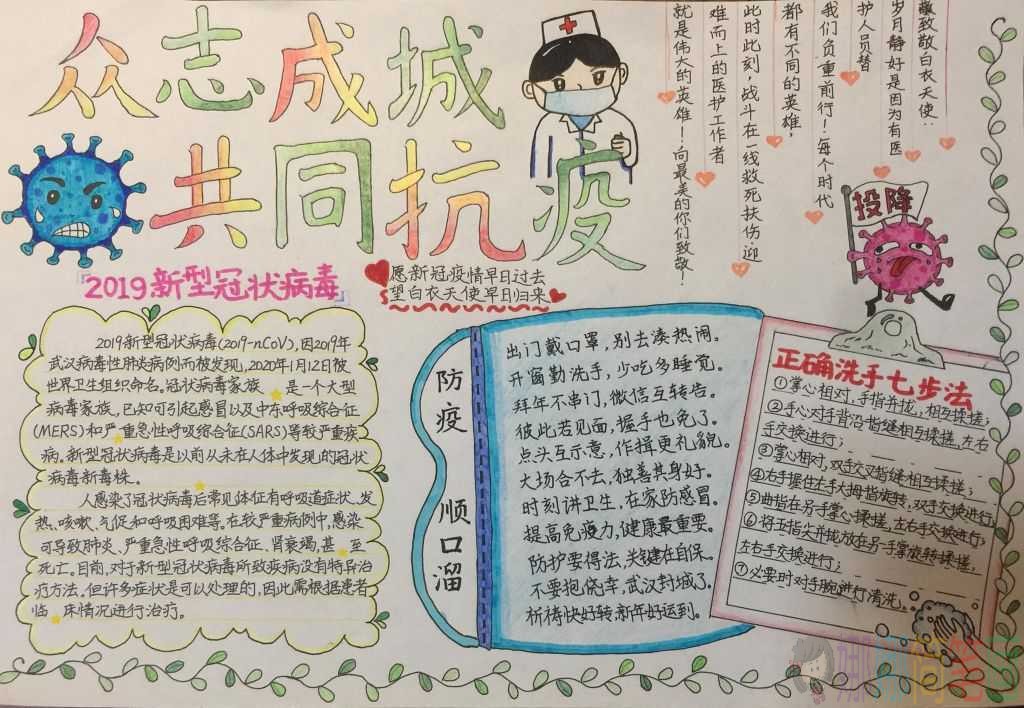 众志成城
共同抗疫
敬致敬白衣天使:
岁月静好是因为有医
护人员替
我们负重前行!每个时代
都有不同的英雄,
此时此刻,战斗在一线救死扶伤,迎
难而上的医护工作者
就是伟大的英雄!向最美的你们致敬!
投降
「2019新型冠状病毒」
愿新冠疫情早日过去
望白衣天使早日归来
2019新型冠状病毒(2019-nCoV),因2019年
武汉病毒性肺炎病例而被发现,2020年1月12日被
世界卫生组织命名。冠状病毒家族 是一个大型
病毒家族,已知可引起感冒以及中东呼吸综合征
(MERS)和严重急性呼吸综合征(SARS)等较严重疾
病。新型冠状病毒是以前从未在人体中发现的冠状
病毒新毒株。
人感染了冠状病毒后常见体征有呼吸道症状、发
热、咳嗽、气促和呼吸困难等。在较严重病例中,感染
可导致肺炎、严重急性呼吸综合征、肾衰竭,甚 至
死亡。目前,对于新型冠状病毒所致疾病没有特异治
疗方法。但许多症状是可以处理的,因此需根据患者
临 床情况进行治疗。
防疫 顺口溜
出门戴口罩,别去凑热闹。
开窗勤洗手,少吃多睡觉。
拜年不串门,微信互转告。
彼此若见面,握手也免了。
点头互示意,作揖更礼貌。
大场合不去,独善其身好。
时刻讲卫生,在家防感冒。
提高免疫力,健康最重要。
防护要得法,关键在自保。
不要抱侥幸,武汉封城了。
祈祷快好转,新年好运到。
正确洗手七步法
①掌心相对,手指并拢,相互揉搓;
②手心对手背沿指缝相互揉搓,左右
手交换进行;
③掌心相对,双手交叉指缝相互揉搓;
④右手握住左手大拇指旋转,双手交换进行;
⑤曲指在另手掌心揉搓,左右手交换进行;
⑥将五指尖并拢放在另一手掌旋转揉搓,
左右手交换进行;
⑦必要时对手腕进行清洗。